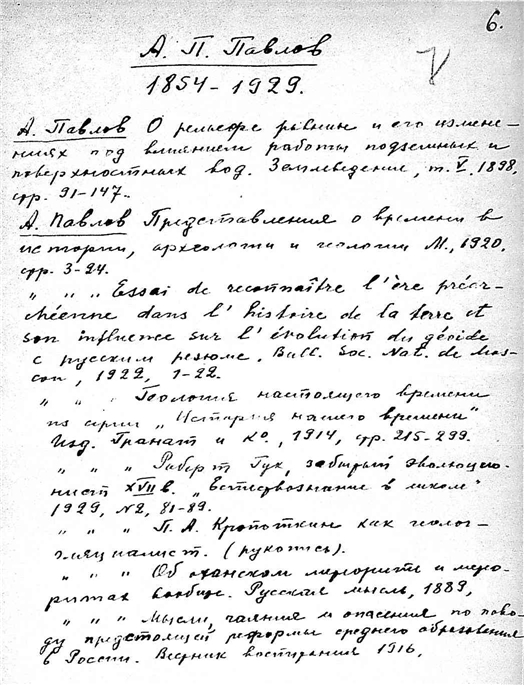 6.
А. П. Павлов
1854-1929.
А. Павлов О рельефе равнин и его измене-
ниях под влиянием работы подземных и
поверхностных вод. Землеведение, т. V, 1898,
стр. 91-147.
А. Павлов Представления о времени в
истории, археологии и геологии М., 1920,
стр. 3-24.
" " " Essai de reconnaître l'ère préar-
chéenne dans l'histoire de la terre et
son influence sur l'évolution du géoide
с русским резюме. Bull. Soc. Nat. de Mos-
cou, 1922, 1-22.
" " " Геология настоящего времени
из серии „История нашего времени"
Изд. Гранат и Ко, 1914, стр. 215-299.
" " " Роберт Гук, забытый эволюцио-
нист XVII в. „Естествознание в школе"
1929, N2, 81-89.
" " " П. А. Кропоткин как геолог-
гляциалист. (рукопись).
" " " Об оханском метеорите и метео-
ритах вообще. Русская мысль, 1889,
" " " Мысли, чаяния и опасения по пово-
ду предстоящей реформы среднего образования
в России. Вестник воспитания 1916,